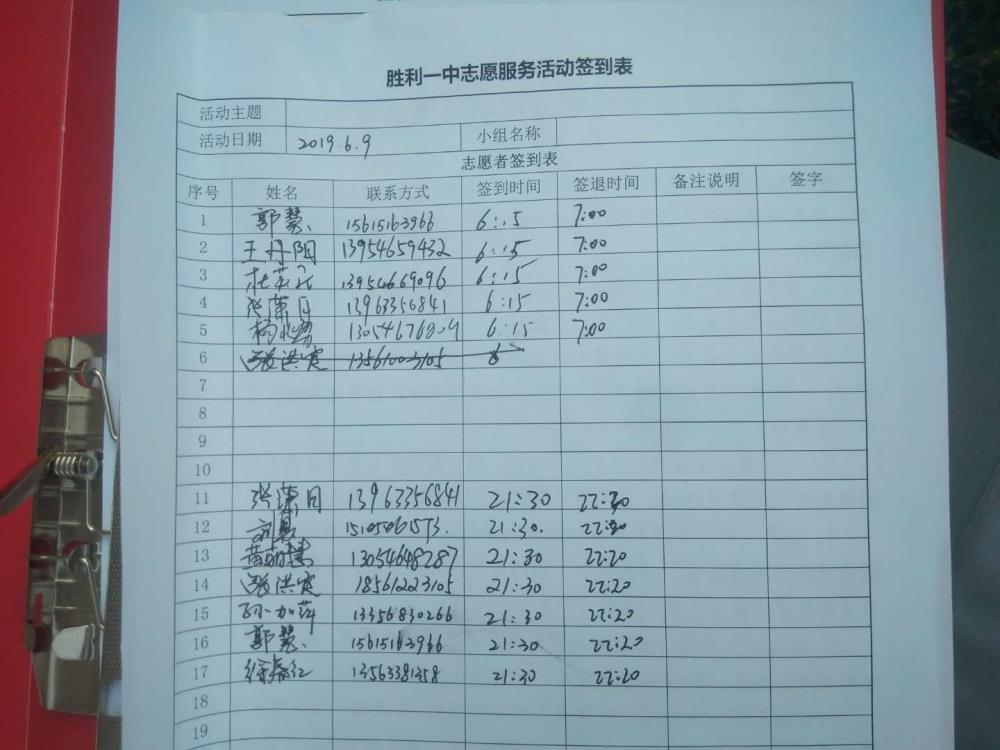 胜利一中志愿服务活动签到表
活动主题
活动日期 2019.6.9 小组名称
志愿者签到表
序号 姓名 联系方式 签到时间 签退时间 备注说明 签字
1 郭慧 15615163966 6:15 7:00
2 王丹阳 13954659432 6:15 7:00
3 13954669096 6:15 7:00
4 13963356841 6:15 7:00
5 6:15 7:00
6
7
8
9
10
11 13963356841 21:30 22:20
12 21:30. 22:20
13 13054648287 21:30 22:20
14 18561223105 21:30 22:20
15 孙加萍 13356830266 21:30 22:20
16 郭慧 15615163966 21:30 22:20
17 13563381358 21:30 22:20
18
19